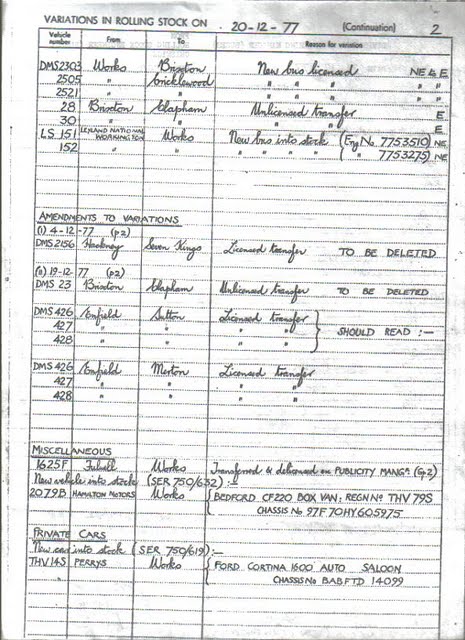 VARIATIONS IN ROLLING STOCK ON 20-12-77 (Continuation) 2
Vehicle number From To Reason for variation
DMS2303 Works Brixton New bus licensed NE & E
2505 " Cricklewood " " " " "
2521 " " " " " " "
28 Brixton Clapham Unlicensed transfer E
30 " " " " E
LS 151 LEYLAND NATIONAL WORKINGTON Works New bus into stock (Eng No 7753510) NE
152 " " " " " " ( " 7753275) NE
AMENDMENTS TO VARIATIONS
(i) 4-12-77 (p2)
DMS 2156 Hackney Seven Kings Licensed transfer TO BE DELETED
(ii) 19-12-77 (p2)
DMS 23 Brixton Clapham Unlicensed transfer TO BE DELETED
DMS 426 Enfield Sutton Licensed transfer
427 " " " " SHOULD READ :—
428 " " " "
DMS 426 Enfield Merton Licensed transfer
427 " " " "
428 " " " "
MISCELLANEOUS
1625F Fulwell Works Transferred & delicensed on PUBLICITY MANGR (Gp2)
New vehicle into stock (SER 750/632) :—
2079B HAMILTON MOTORS Works BEDFORD CF220 BOX VAN: REGN No THV 79S
CHASSIS No 97F70HY605975
PRIVATE CARS
New car into stock (SER 750/619):—
THV 14S PERRYS Works FORD CORTINA 1600 AUTO SALOON
CHASSIS No BABFTD 14099